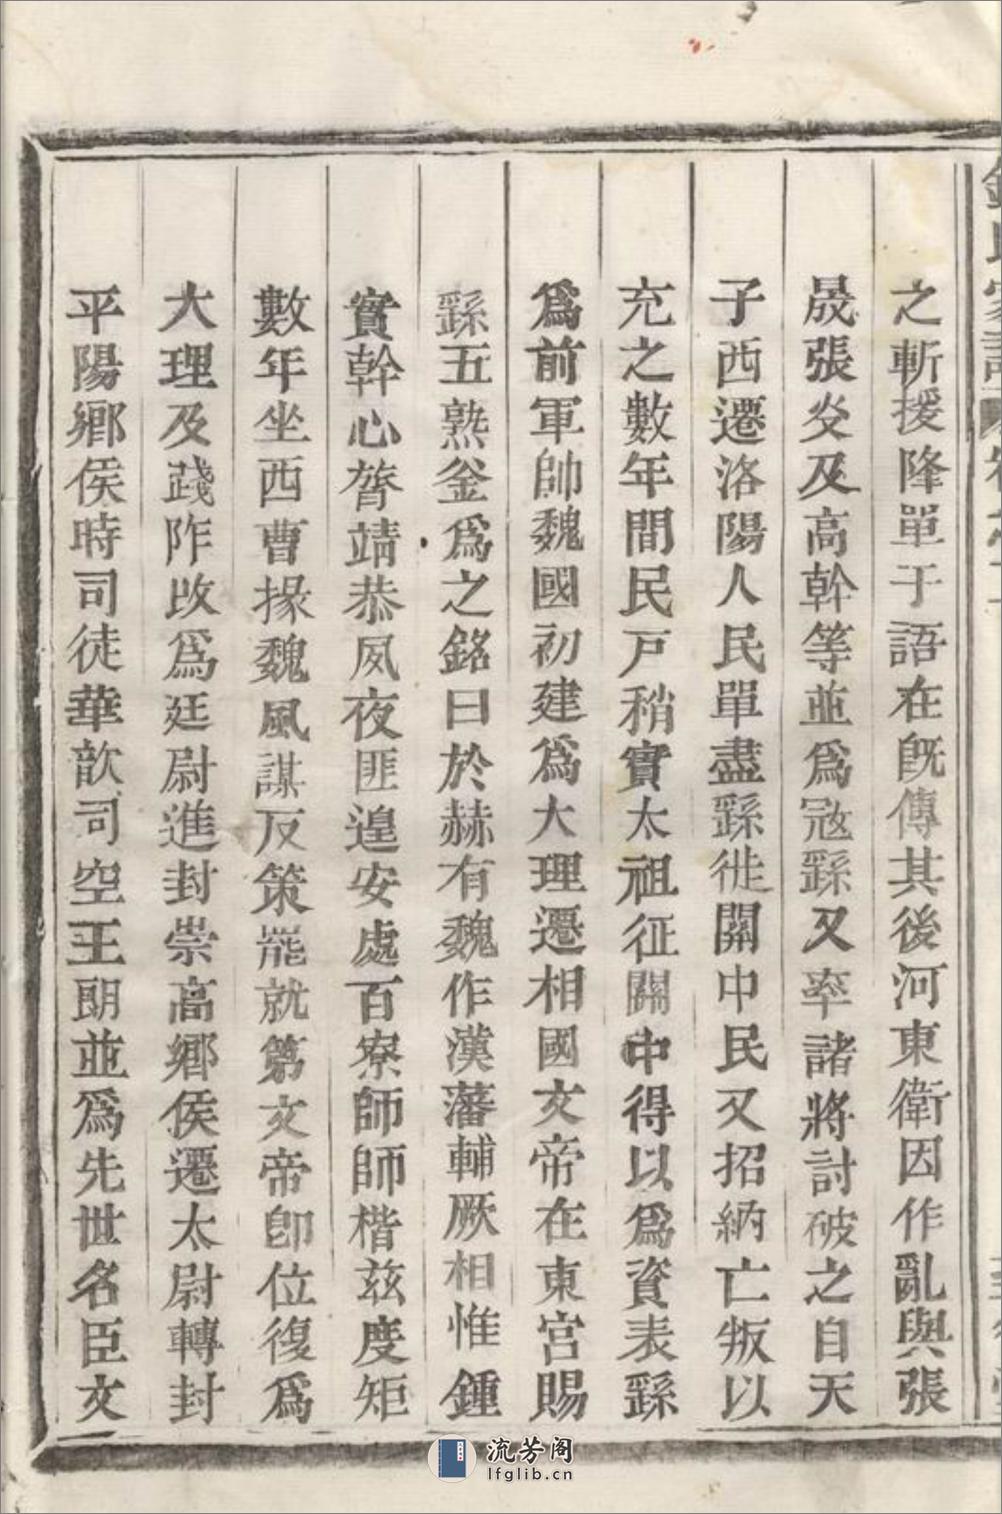 之斬援降單于語在旣傳其後河東衛因作亂與張
晟張炎及高幹等並爲冦繇又率諸將討破之自天
子西遷洛陽人民單盡繇徙關中民又招納亡叛以
充之數年間民戸稍實太祖征關中得以爲資表繇
爲前軍帥魏國初建爲大理遷相國文帝在東宮賜
繇五熟釜爲之銘曰於赫有魏作漢藩輔厥相惟鍾
實幹心膂靖恭夙夜匪遑安處百寮師師楷兹度矩
數年坐西曹掾魏風謀反策罷就第文帝卽位復爲
大理及踐阼改爲廷尉進封崇高鄉侯遷太尉轉封
平陽鄉侯時司徒華歆司空王朗並爲先世名臣文
流芳阁
lfglib.cn